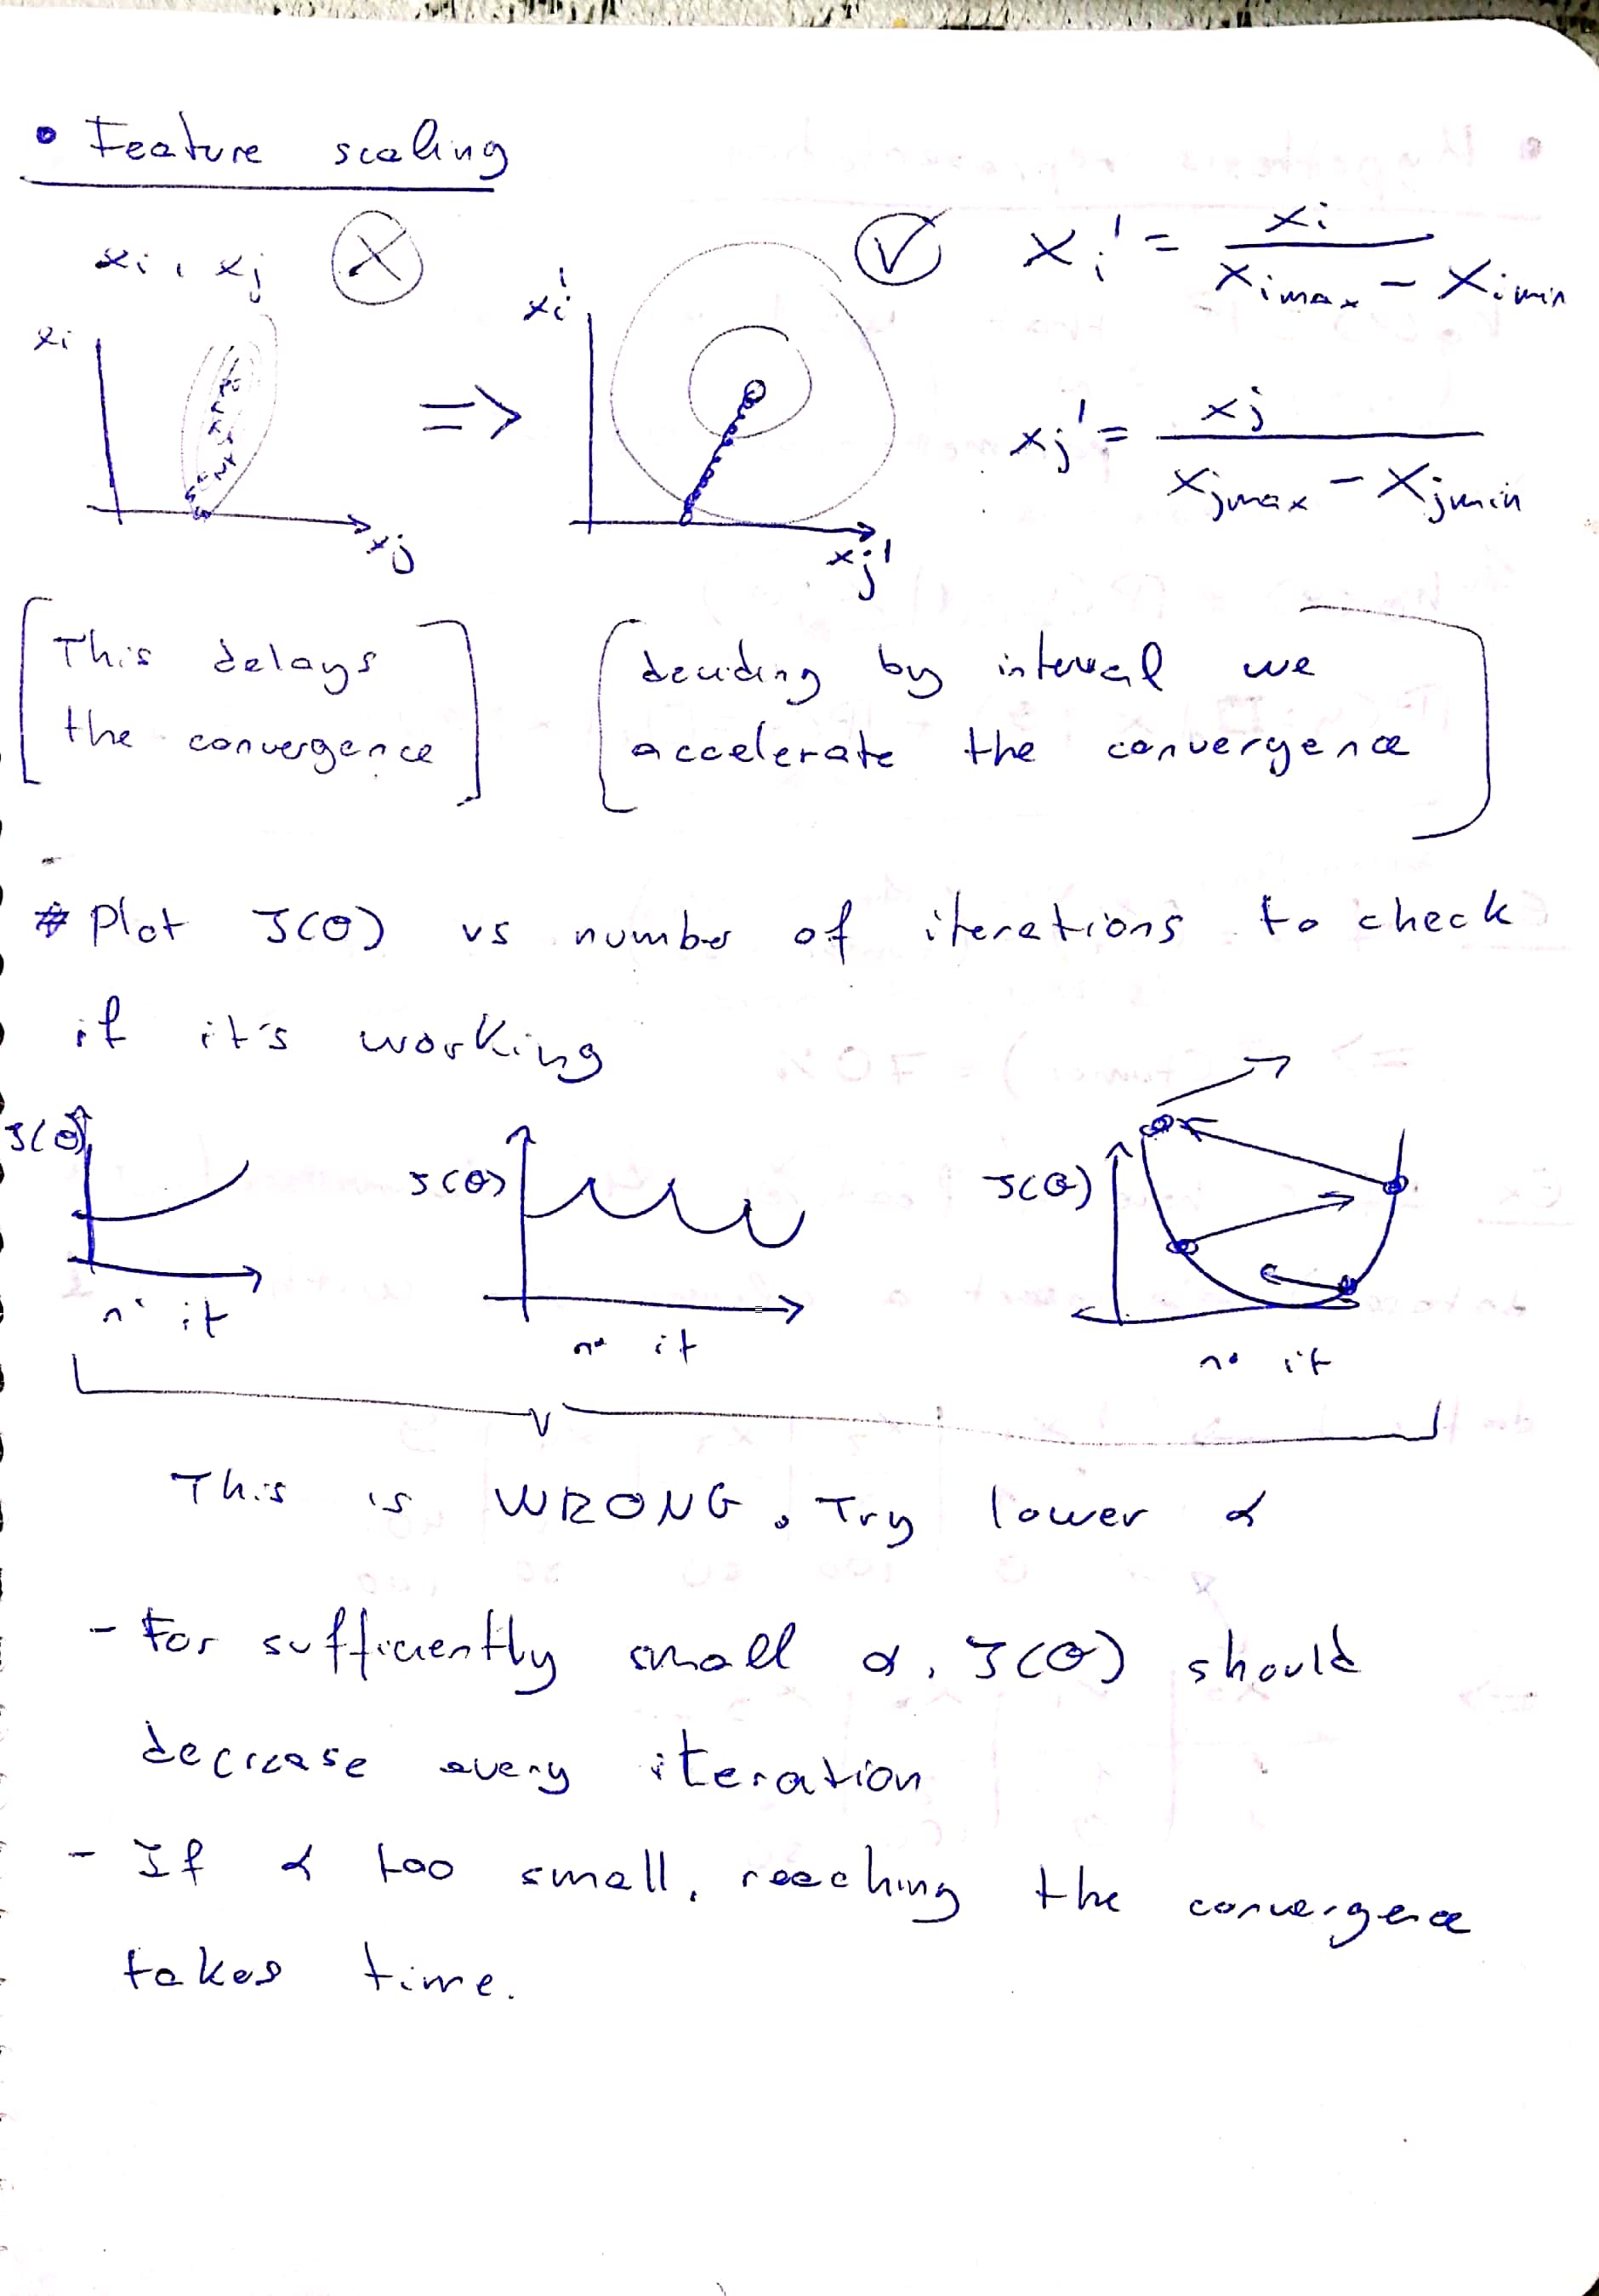 • Feature scaling
xi, xj X
V
xi' = xi / (ximax - ximin)
xi
xj
=>
xi'
xj'
xj' = xj / (xjmax - xjmin)
[This delays
the convergence]
[deciding by interval we
accelerate the convergence]
# Plot J(θ) vs number of iterations to check
if it's working
J(θ)
n° it
J(θ)
n° it
J(θ)
n° it
This is WRONG. Try lower α
- For sufficiently small α, J(θ) should
decrease every iteration
- If α too small, reaching the convergence
takes time.